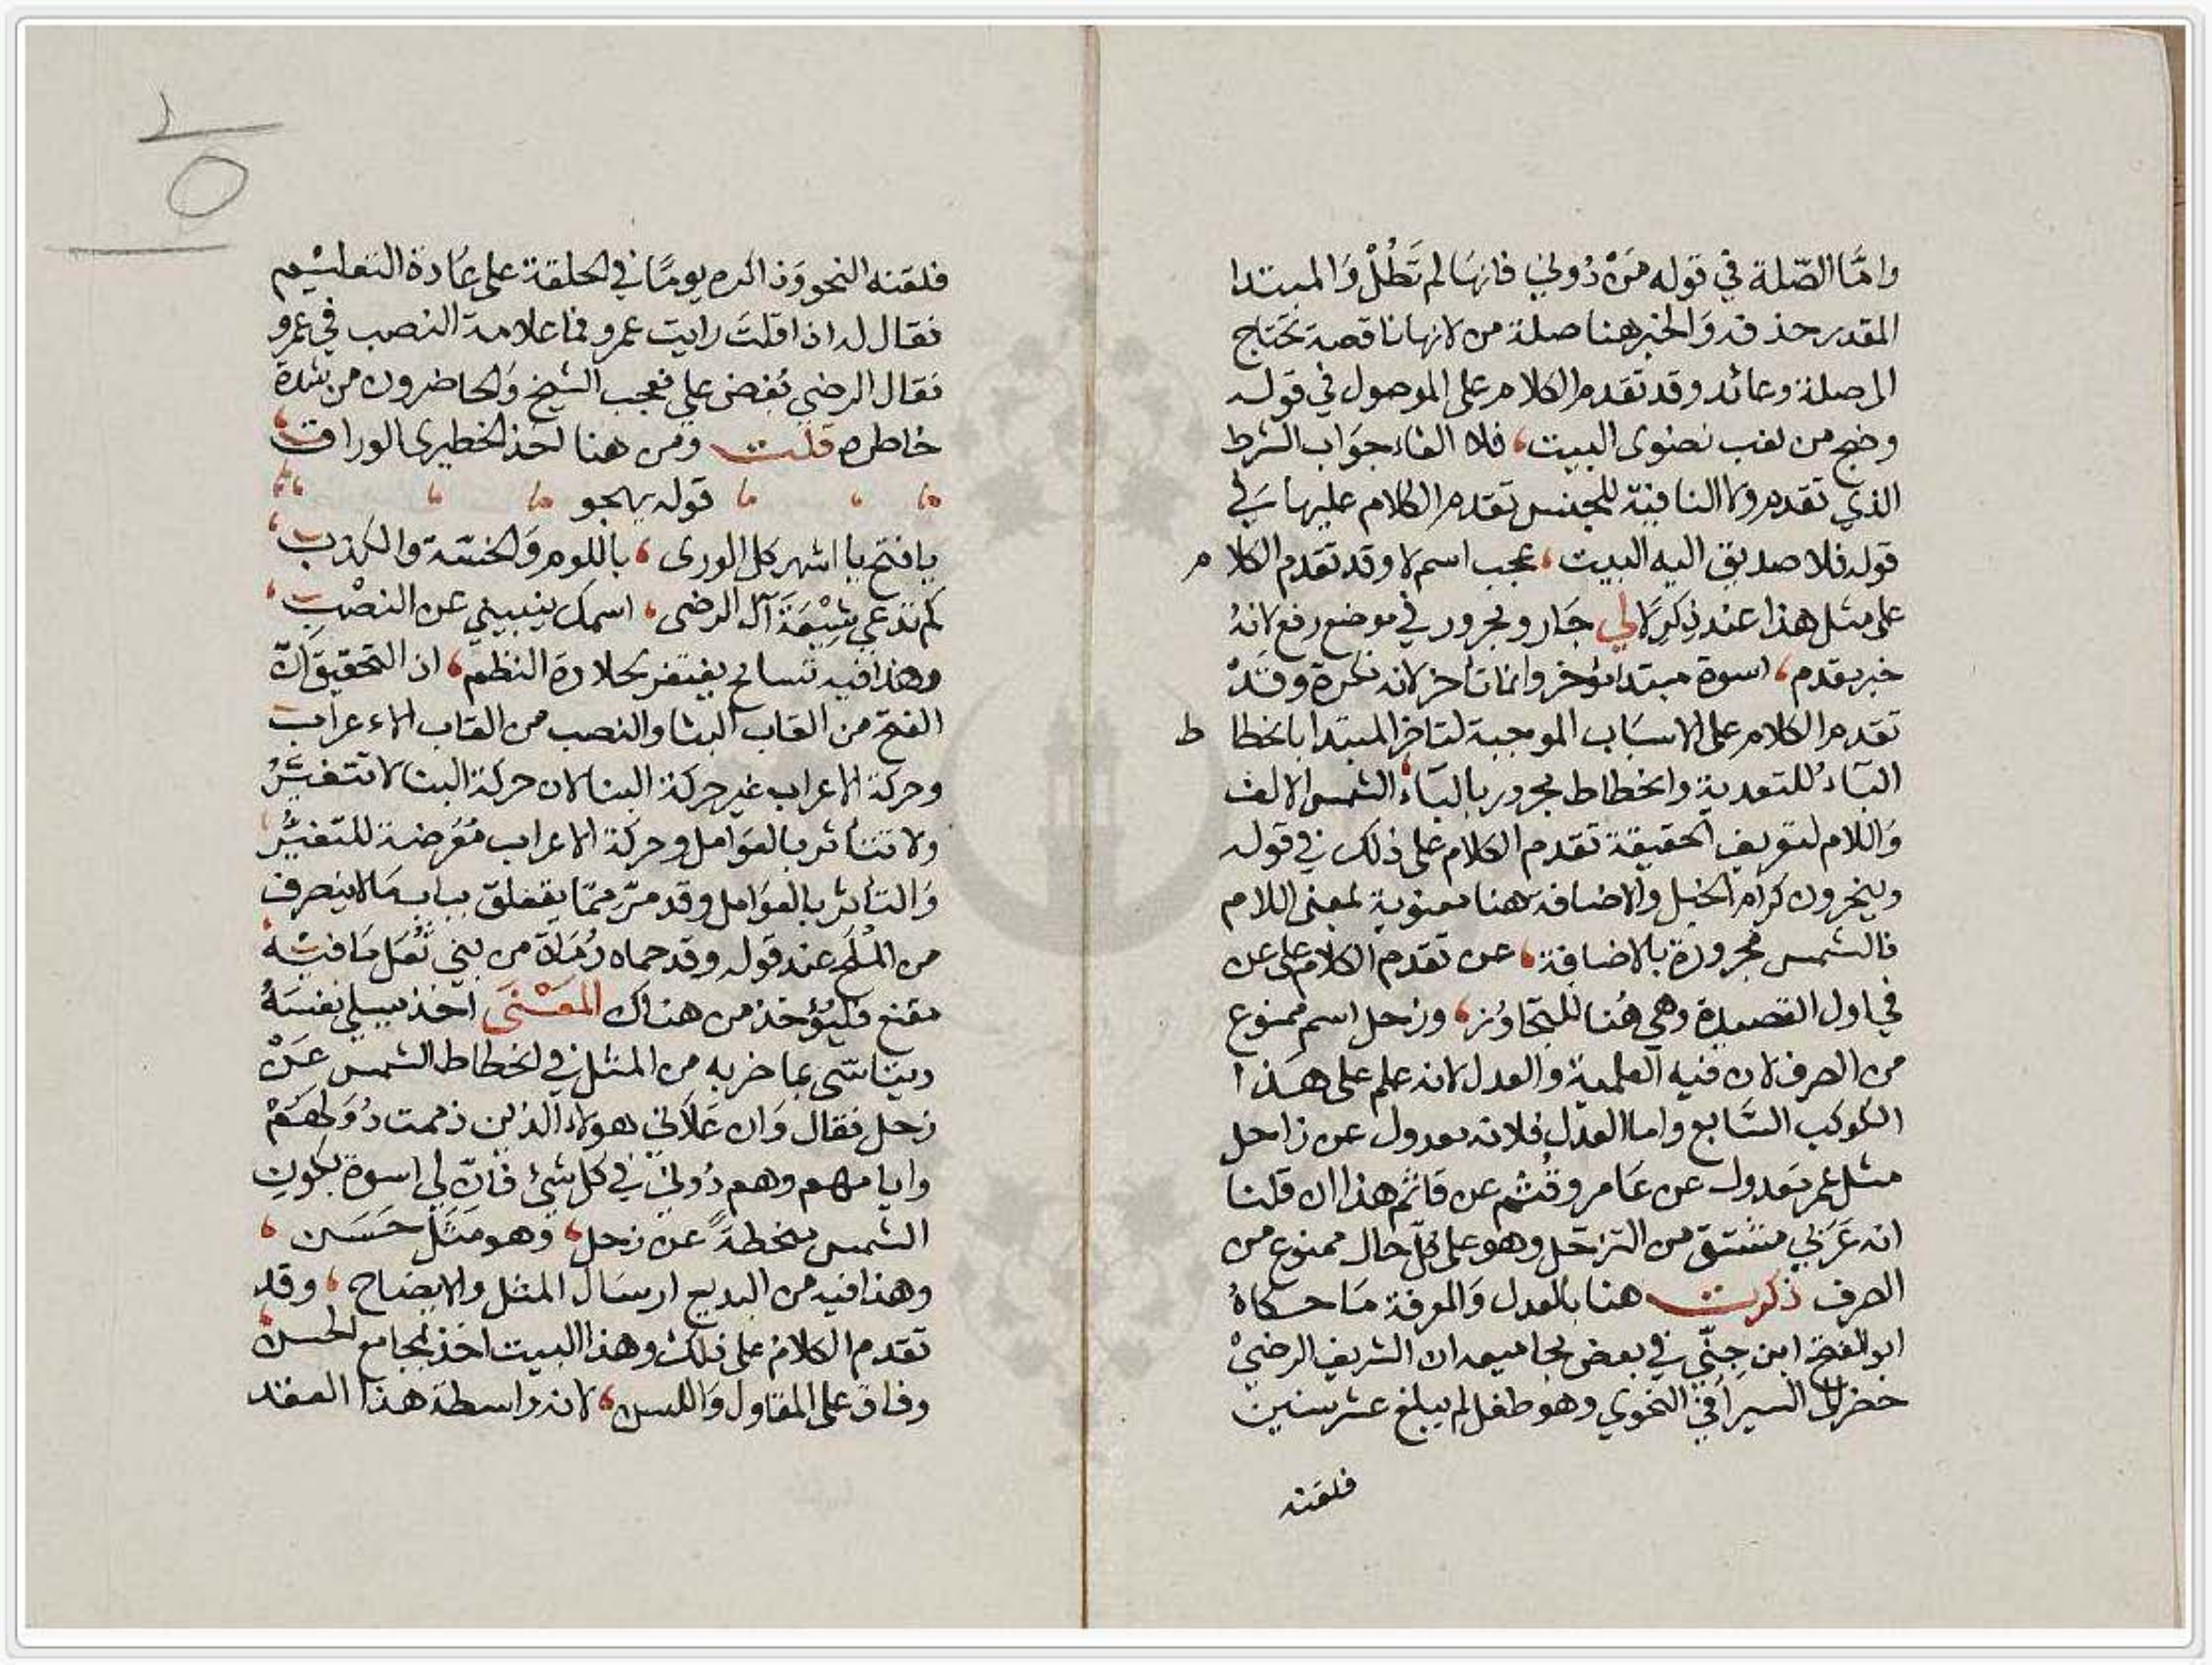 واما الصّلة في قوله مَنْ دُوني فانها لم تَطُلْ وَالمبتدا
المقدر حذفه وَالخبر هنا صلة من لانها ناقصة تحتاج
الى صلة وعائد وقد تقدم الكلام على الموصول في قوله
وضج من لغب نضوى البيت، فلا الفاء جوَاب الشرط
الذي تقدم ولا النافية للجنس تقدم الكلام عليها في
قوله فلا صديق اليه البيت، عجب اسم لا وقد تقدم الكلام
على مثل هذا عند ذِكرلا لي جَار ومجرور في موضع رفع لانهُ
خبر مقدم، اسوة مبتدا مؤخر وانما تاخر لانه نكرة وقَدْ
تقدم الكلام على الاسبَاب الموجبة لتاخر المبتدا بانحطاط
البَآءُ للتعدية وانحطاط مجرور بالبَآء، الشمس الالف
وَاللام لتعريف الحقيقة تقدم الكلام على ذلك في قوله
وينحرون كرام الخيل والاضافة هنا معنوية بمعنى اللام
فالشمس مجرورة بالاضافة، عن تقدم الكلام على عن
في اول القصيدة وهي هُنا للتجاوُز، وزحل اسم ممنوع
من الصرف لان فيه العلمية والعدل لانه علم على هَذا
الكوكب السَّابع واما العدْل فلانه معدول عن زاحل
مثل عمر معدول عن عَامر وقُثم عن قاثم هذا ان قلنا
انه عَرَبي مشتق من التزحّل وهو على كلّ حال ممنوع من
الصرف ذكرت هنا بالعدل وَالمعرفة مَا حكاهُ
ابو الفتح ابن جِنّي في بعض مجاميعه ان الشريف الرضيْ
حضر الى السيرافي النحوي وهو طفل لم يبلغ عشر سنين
فلقنه
فلقنه النحو وَذاكره يومًا في الحلقة على عَادة التعليْم
فقال له اذا قلتَ رايت عمرو فما علامة النصب في عمرو
فقال الرضي بُغض علي فعجب الشيخ وَالحاضرون من شدة
خاطره قلت ومن هنا اخذ الخطيرى الوراق،
قوله يهجو
يا فتح يا اشهر كل الورى، باللوم وَالخسّة والكذب،
كم تدعي شِيْعَةَ آل الرضى، اسمك ينبيني عن النصْب،
وهذا فيه تسامح يغتفر بحلاوة النظم، اذ التحقيق انّ
الفتح من القاب البنا والنصب من القاب الاعراب
وحركة الاعراب غير حركة البنا لان حركة البنا لا تتغيّرُ
ولا تتأثر بالعوَامل وحركة الاعراب مُعَرضة للتغيُّر
وَالتأثر بالعوَامل وقد مرّ ممّا يتعلق بباب مَا لا ينصرف
من المُلَح عند قوله وقد حماه رُمَاة من بني ثُعَل مَا فيْه
مقنع فليُؤخذ من هناك المعْنَى اخذ يسلي نفسَهُ
ويتاسّى بما ضربه من المثل في انحطاط الشمس عَنْ
زحل فقال وَان عَلَاني هولاء الذين ذممت دُوَلهَمْ
وايامهم وهم دُوني في كل شئ فانّ لي اسوة بكون
الشمس منحطةً عن زحل، وَهو مَثَل حَسَن،
وهذا فيه من البديع ارسَال المثل والايضاح، وقد
تقدم الكلام على ذلك وهذا البيت اخذ بمجامع الحسن،
وفاق على المقاول وَاللسن، لانه واسطة هذا العقد